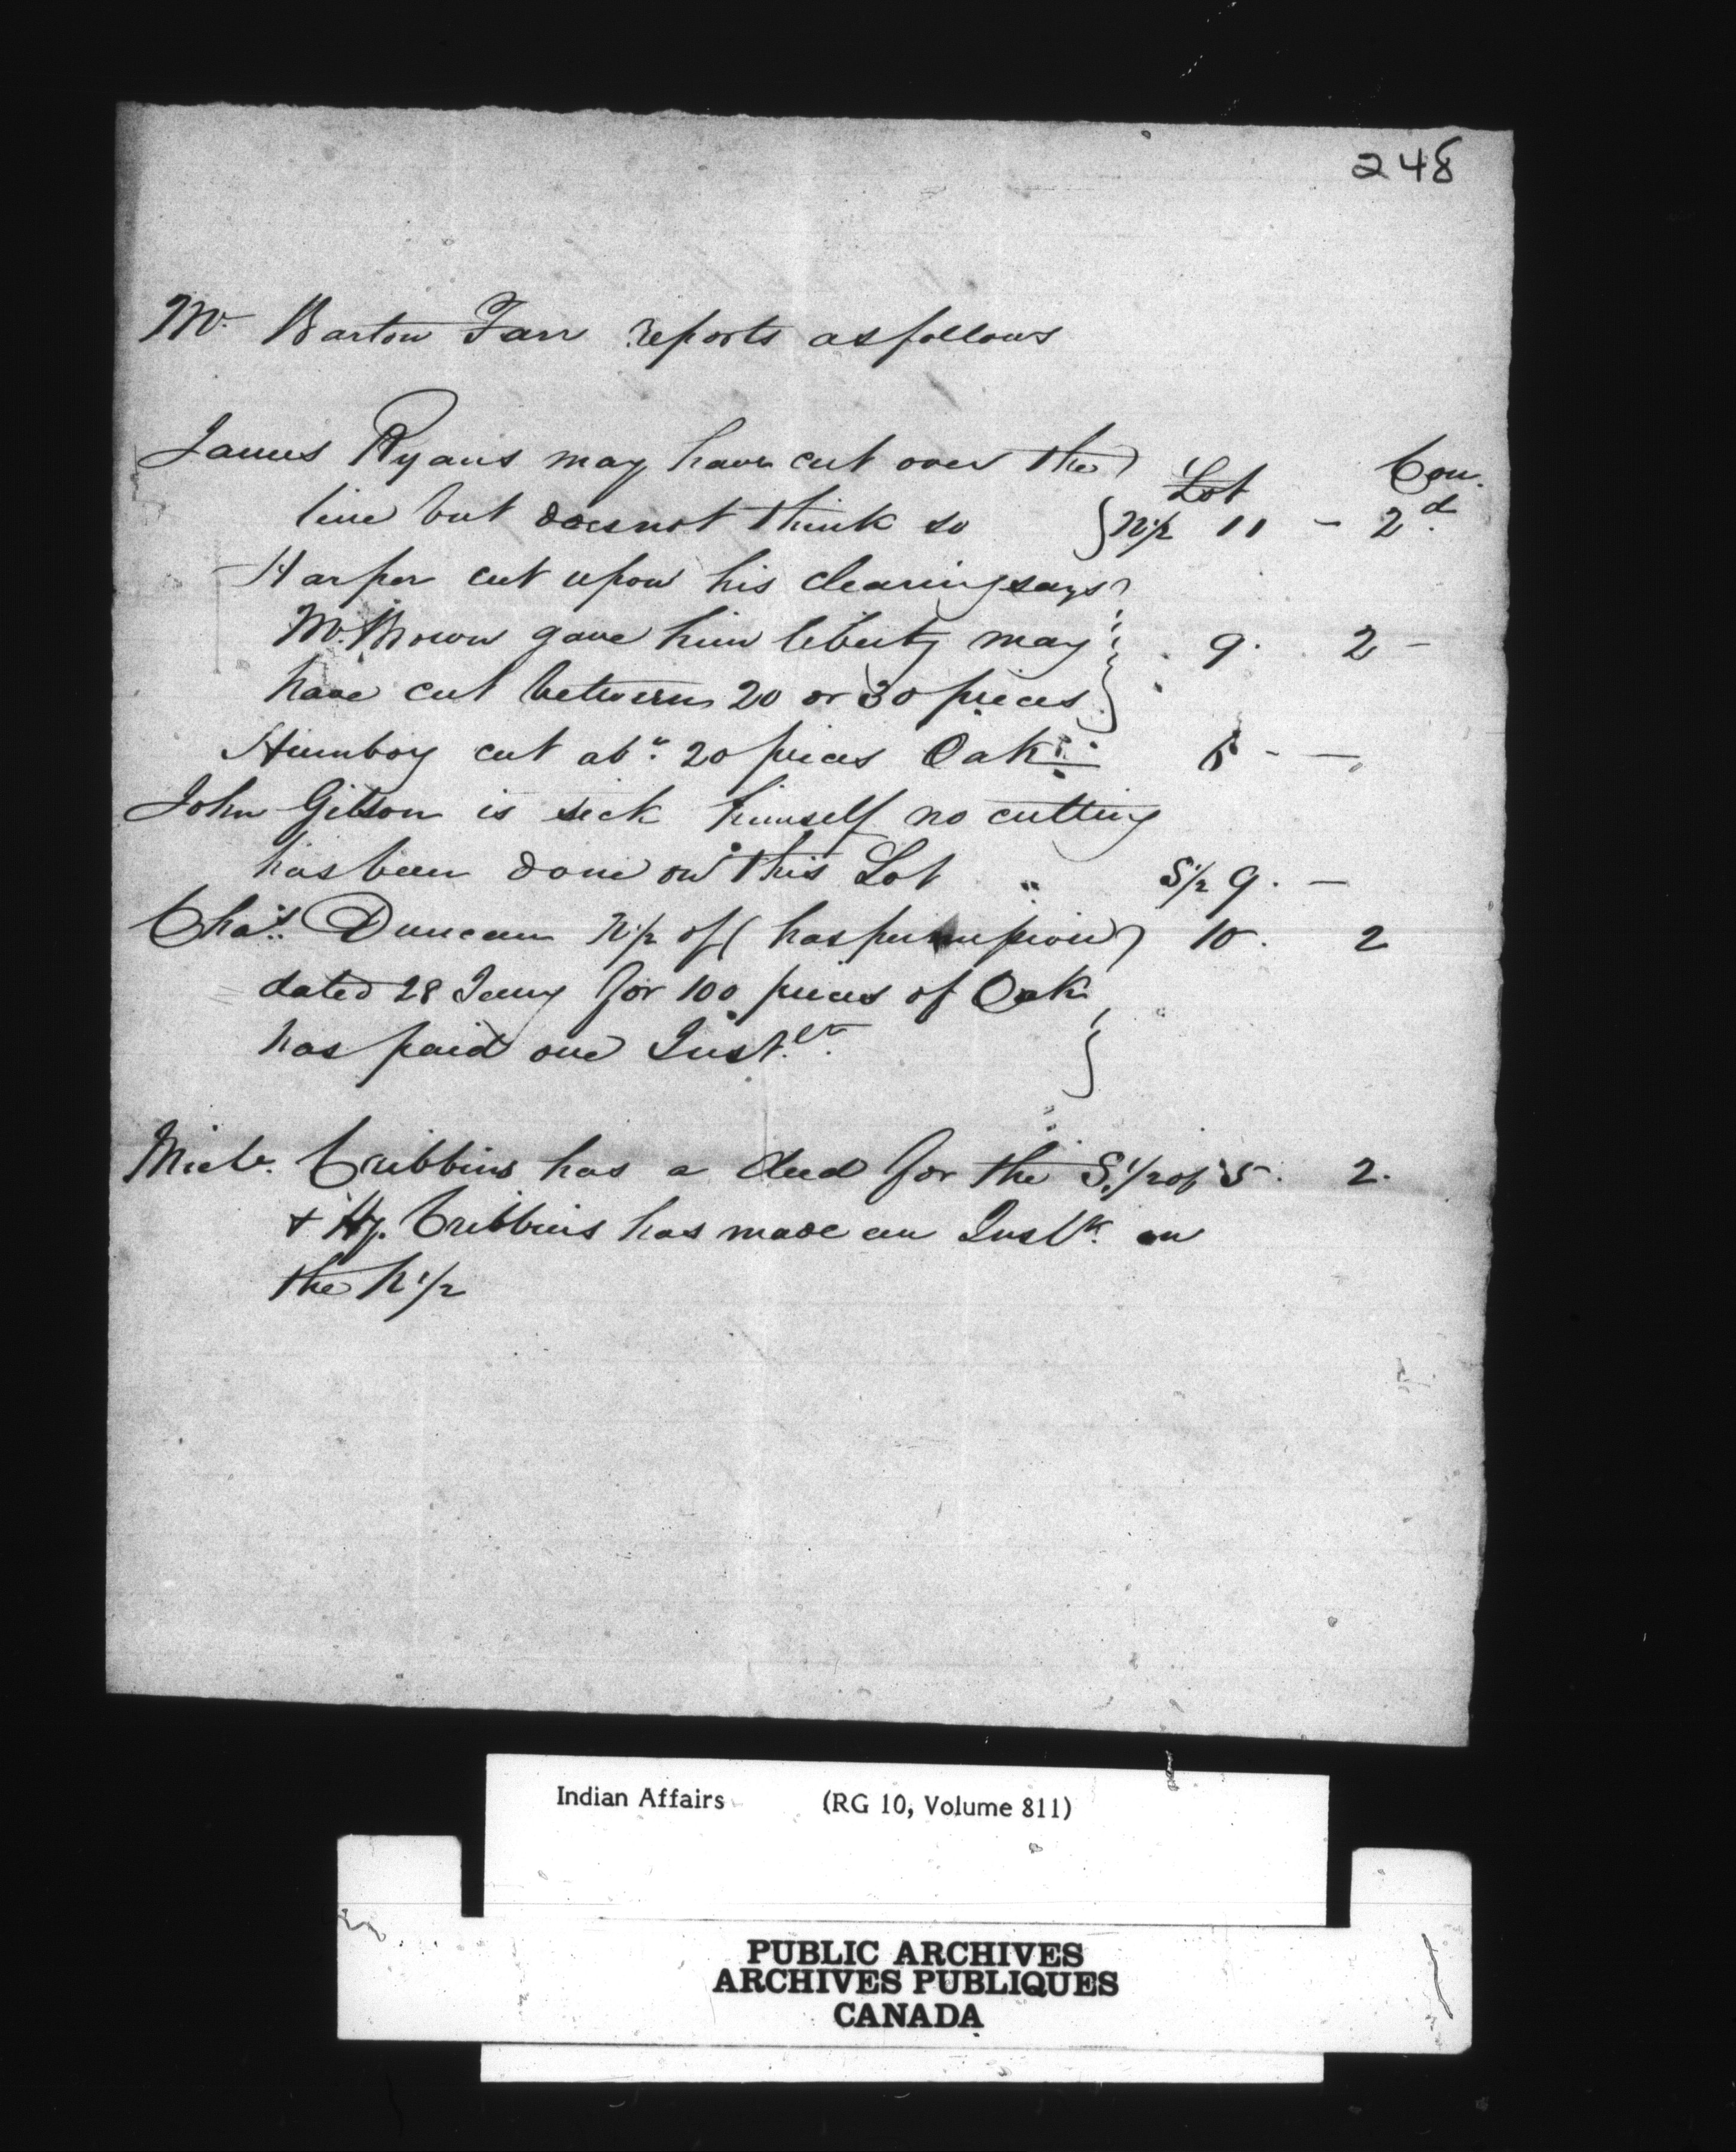 248
Mr Barton Farr reports as follows
James Ryans may have cut over the Lot Con.
line but does not think so } N½ 11 - 2d.
Harper cut upon his clearing says
Mr. Brown gave him liberty may } 9. 2 -
have cut between 20 or 30 pieces
cut abt. 20 pieces Oak - -
John Gibson is sick himself no cutting
has been done on this Lot " S½ 9. -
Chas. Duncan N½ of ( has permission 10. 2
dated 28 Jany for 100 pieces of Oak
has paid one Instt. }
Michl. Cribbins has a deed for the S.½ of 5. 2.
+ Hy. Cribbins has made an Inst. on
the N½
Indian Affairs (RG 10, Volume 811)
PUBLIC ARCHIVES
ARCHIVES PUBLIQUES
CANADA